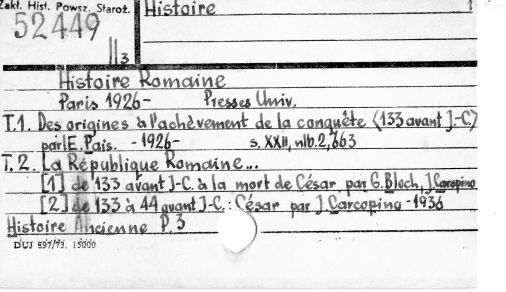 Zakł. Hist. Powsz. Staroż.
Histoire
1
52449
II3
Histoire Romaine
Paris 1926- Presses Univ.
T.1. Des origines à l'achèvement de la conquête (133 avant J-C)
par E. Pais. -1926- s. XXII, nlb. 2, 663
T.2. La République Romaine...
[1] de 133 avant J-C. à la mort de César, par G. Bloch, J. Carcopino
[2] de 133 à 44 avant J-C.: César par J. Carcopino -1936
Histoire Ancienne P. 3
DUJ 897/73. 15000